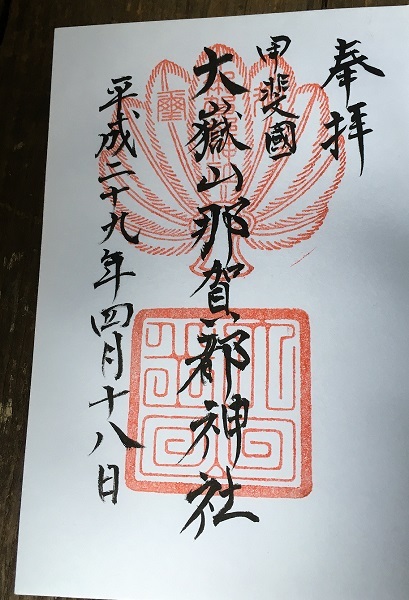 奉拝
甲斐國
大嶽山那賀都神社
平成二十九年四月十八日